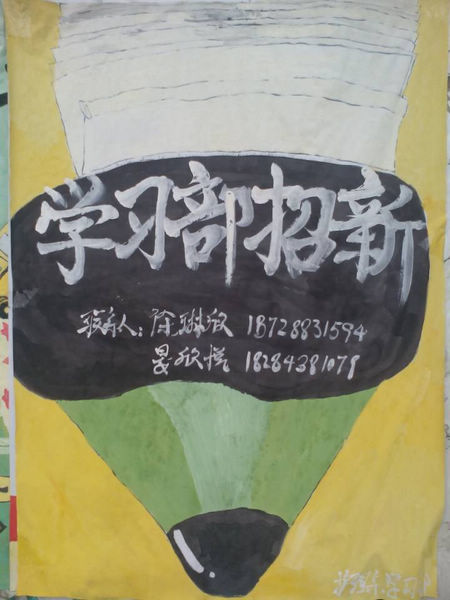 学习部招新
联系人：徐琳欣 18728831594
晏欣悦 18284381079
学习部